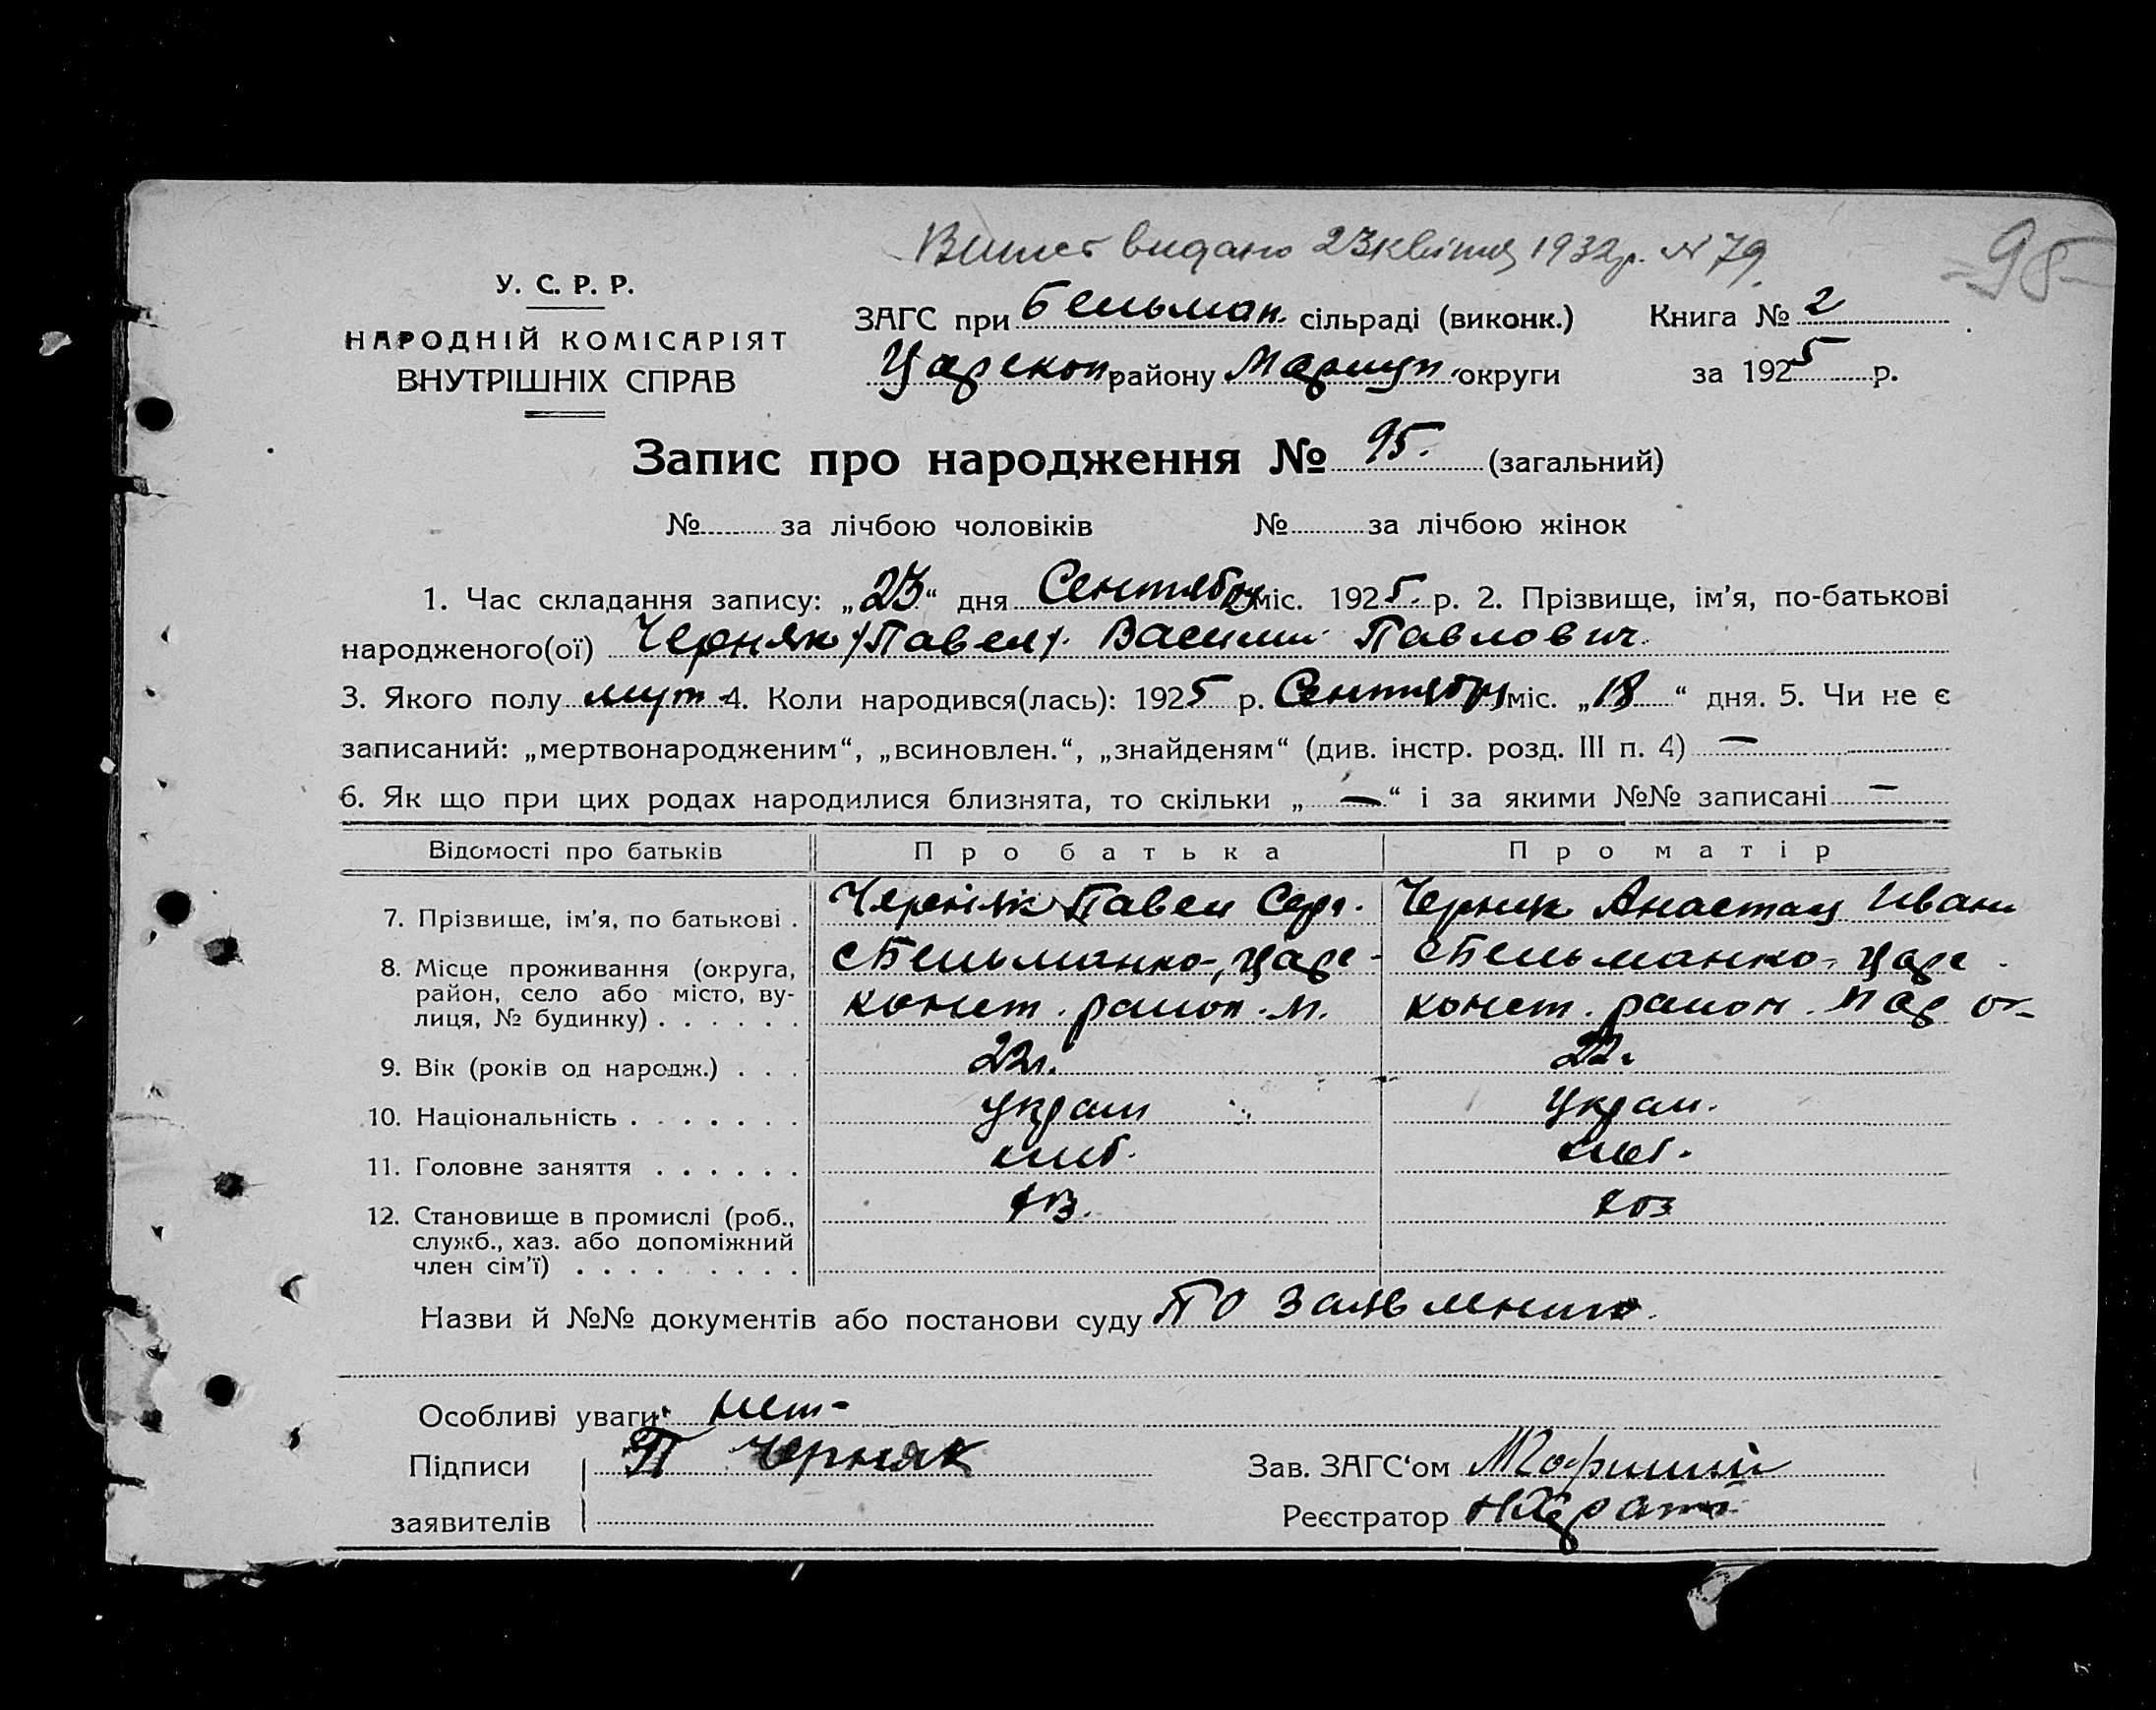 видано 23 квітня 1932 р. № 79
95
У. С. Р. Р.
НАРОДНІЙ КОМІСАРІЯТ
ВНУТРІШНІХ СПРАВ
ЗАГС при Бельман. сільраді (виконк.) Книга № 2
Царекон району Мариуп. округи за 1925 р.
Запис про народження № 95. (загальний)
№ за лічбою чоловіків № за лічбою жінок
1. Час складання запису: „23“ дня Сентября міс. 1925 р. 2. Прізвище, ім'я, по-батькові
народженого(ої) Черняк /Павел/. Василий Павлович
3. Якого полу муж 4. Коли народився(лась): 1925 р. Сентября міс. „18“ дня. 5. Чи не є
записаний: „мертвонародженим“, „всиновлен.“, „знайденям“ (див. інстр. розд. III п. 4) —
6. Як що при цих родах народилися близнята, то скільки „—“ і за якими №№ записані —
Відомості про батьків Про батька Про матір
7. Прізвище, ім'я, по батькові . Черняк Павел Серг. Черняк Анастац Иван
8. Місце проживання (округа, район, село або місто, ву- лиця, № будинку) . . . . . . с Бельманко-, Царе- с Бельманко-, Царе-
конст. район. М. конст. район. Мар ок
9. Вік (років од народж.) . . . 22 г. 22 г
10. Національність . . . . . . . украи Украи.
11. Головне заняття . . . . . . хлеб. хлеб.
12. Становище в промислі (роб., служб., хаз. або допоміжний член сім'ї) . . . . . . . . хоз
Назви й №№ документів або постанови суду По заявлению.
Особливі уваги: нет-
Підписи П Черняк Зав. ЗАГС‘ом
заявителів Реєстратор